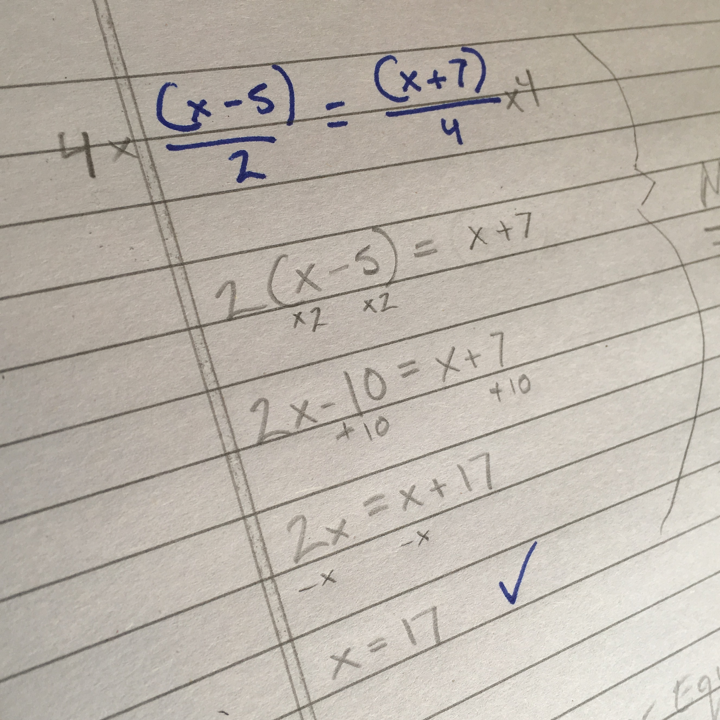 4 × (x - 5)/2 = (x + 7)/4 × 4
2(x - 5) = x + 7
×2 ×2
2x - 10 = x + 7
+10 +10
2x = x + 17
-x -x
x = 17 ✓